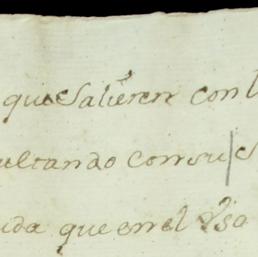 que Salieren con l
ultando con su s
uda que en el Uso